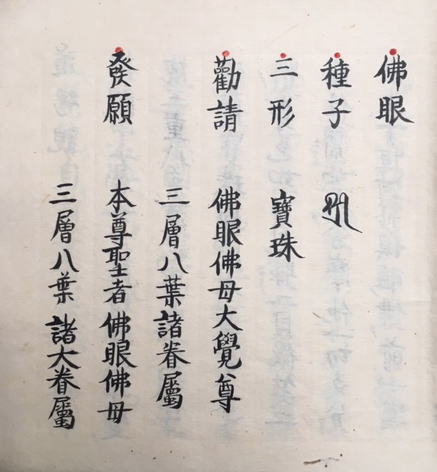 佛眼
種子
三形 寶珠
勸請 佛眼佛母大覺尊
三層八葉諸眷屬
發願 本尊聖者佛眼佛母
三層八葉諸大眷屬